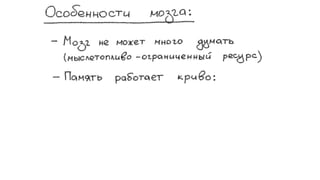 Особенности мозга:
- Мозг не может много думать
(мыслетопливо - ограниченный ресурс)
- Память работает криво: